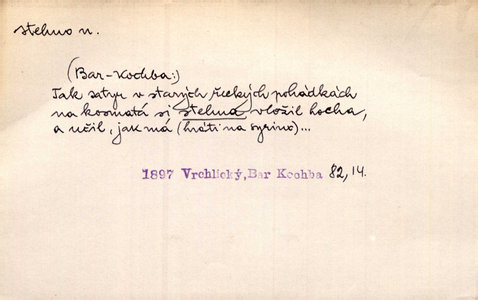 stehno n.
(Bar-Kochba:)
Jak satyr v starých řeckých pohádkách
na kosmatá si stehna vložil hocha,
a učil, jak má (hráti na syrinx)...
1897 Vrchlický,Bar Kochba 82,14.